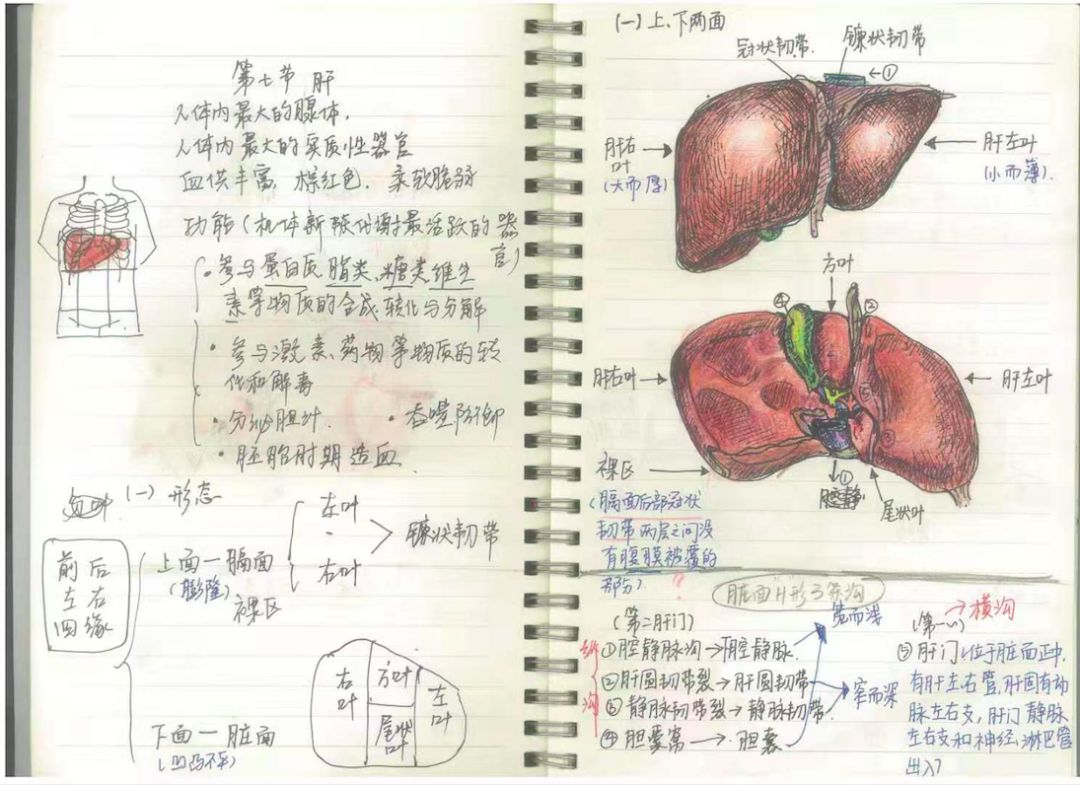 第七节 肝
人体内最大的腺体,
人体内最大的实质性器官
血供丰富, 棕红色, 柔软脆
功能(机体新陈代谢最活跃的器官)
·参与蛋白质 脂类、糖类、维生
素等物质的合成、转化与分解
·参与激素、药物等物质的转
化和解毒
·分泌胆汁. ·吞噬防御
·胚胎时期造血
(一) 形态
前后
左右
四缘
上面一膈面
(膨隆)
裸区
左叶
右叶
镰状韧带
下面一脏面
(凹凸不平)
右叶
方叶
尾状叶
左叶
(一)上、下两面
冠状韧带.
镰状韧带
←①
肝右叶
(大而厚)
肝左叶
(小而薄).
方叶
④
②
肝右叶
肝左叶
裸区
①
腔静
尾状叶
(膈面后部冠状
韧带两层之间没
有腹膜被覆的
部分)
?
脏面H形3条沟
(第二肝门)
宽而浅
纵沟
①腔静脉沟→下腔静脉.
②肝圆韧带裂→肝圆韧带
③静脉韧带裂→静脉韧带.
④胆囊窝→胆囊
窄而深
(第一)
横沟
⑤肝门:位于脏面正中,
有肝左右管,肝固有动
脉左右支,肝门静脉
左右支和神经、淋巴管
出入